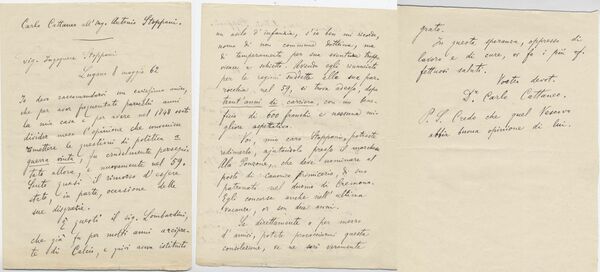 Carlo Cattaneo all'ing. Antonio Stoppani.
Sig. Ingegnere Stoppani
Lugano 8 maggio 62
Io devo raccomandarvi un carissimo amico,
che per aver frequentato parecchi anni
la mia casa e per avere nel 1848 osato
divider meco l'opinione che conveniva
rimettere le questioni di politica a
guerra vinta, fu crudelmente persegui-
tato allora, e nuovamente nel 59.
Sento quasi il rimorso d'essere
stato, in parte, occasione delle
sue disgrazie.
È questi il sig. Lombardini,
che già fu per molti anni arcipre-
te di Calcio, e quivi aveva istituito
un asilo d'infanzia, s'io ben mi ricordo,
uomo di non comune dottrina, ma
di temperamento per sua sventura
vivace e subìto. Avendo egli
per le ragioni suddette alla sua par-
rocchia nel 59, si trova adesso, dopo
trent'anni di carriera, con un bene-
ficio di 600 franchi e nessuna mi-
gliore aspettativa.
Voi, mio caro Stoppani, potreste
redimerlo, ajutandolo presso il marchese
Ala Ponzone, che deve nominare al
posto di canonico primicerio, di suo
patronato nel duomo di Cremona.
Egli concorse anche nell'ultima
vacanza, or son due anni.
Se direttamente o per mezzo
d'amici, potete procacciarmi questa
consolazione, ve ne sarò veramente
grato.
In questa speranza, oppresso di
lavoro e di cure, vi fo i più af-
fettuosi saluti.
Vostro devot.
Dr. Carlo Cattaneo.
P. S. Credo che quel Vescovo
abbia buona opinione di lui.